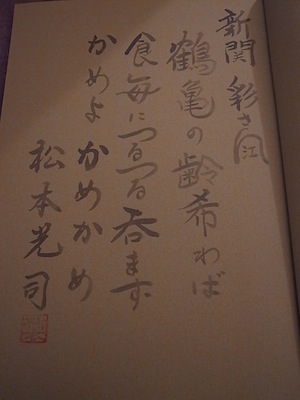 新関 彩さん江
鶴亀の齢希わば
食毎につるつる呑まず
かめよ かめかめ
松本光司